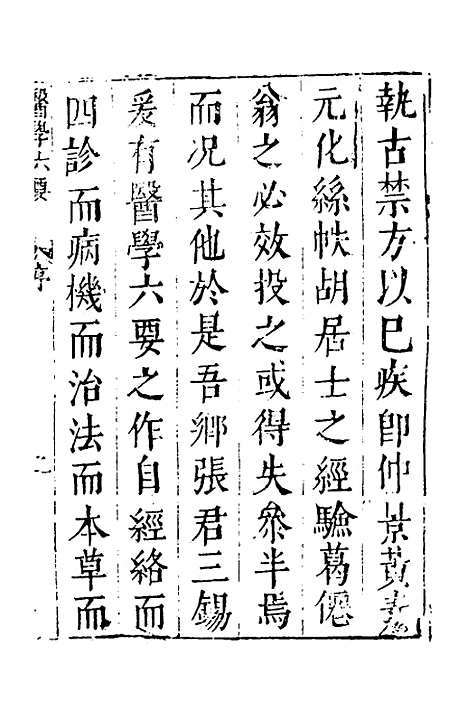 執古禁方以已疾即仲景黃素
元化綠帙胡居士之經驗葛僊
翁之必效投之或得失參半焉
而况其他於是吾鄉張君三錫
爰有醫學六要之作自經絡而
四診而病機而治法而本草而
醫學六要 序